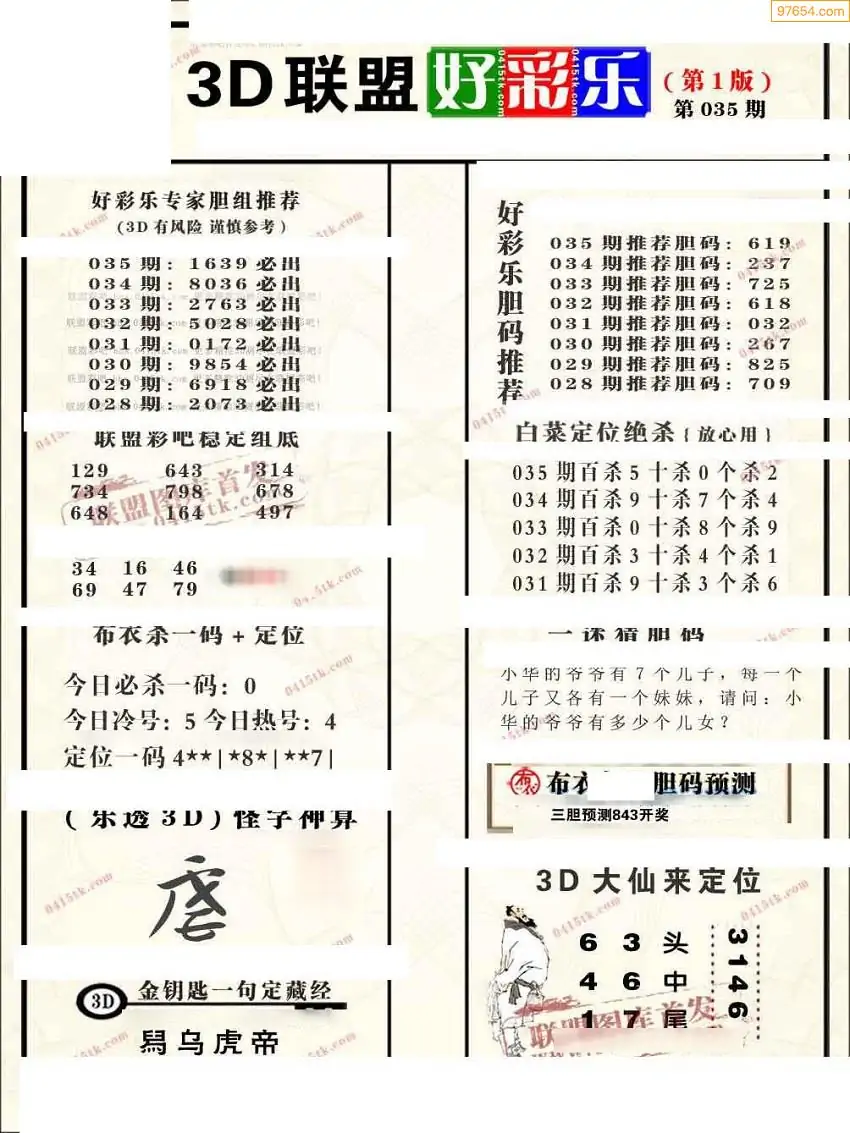 97654.com
3D联盟 好彩乐 (第1版)
第035期
好彩乐专家胆组推荐
(3D有风险 谨慎参考)
035期: 1639必出
034期: 8036必出
033期: 2763必出
032期: 5028必出
031期: 0172必出
030期: 9854必出
029期: 6918必出
028期: 2073必出
联盟彩吧稳定组底
129 643 314
734 798 678
648 164 497
34 16 46
69 47 79
布衣杀一码+定位
今日必杀一码: 0
今日冷号: 5 今日热号: 4
定位一码4**|*8*|**7|
(乐透3D)怪字神算
3D 金钥匙一句定藏经
乌虎帝
好彩乐胆码推荐
035期推荐胆码: 619
034期推荐胆码: 237
033期推荐胆码: 725
032期推荐胆码: 618
031期推荐胆码: 032
030期推荐胆码: 267
029期推荐胆码: 825
028期推荐胆码: 709
白菜定位绝杀{放心用}
035期百杀5十杀0个杀2
034期百杀9十杀7个杀4
033期百杀0十杀8个杀9
032期百杀3十杀4个杀1
031期百杀9十杀3个杀6
一课猜胆码
小华的爷爷有7个儿子，每一个
儿子又各有一个妹妹，请问：小
华的爷爷有多少个儿女？
布衣 胆码预测
三胆预测843开奖
3D大仙来定位
6 3 头
4 6 中
1 7 尾
3146
联盟图库首发
0415tk.com